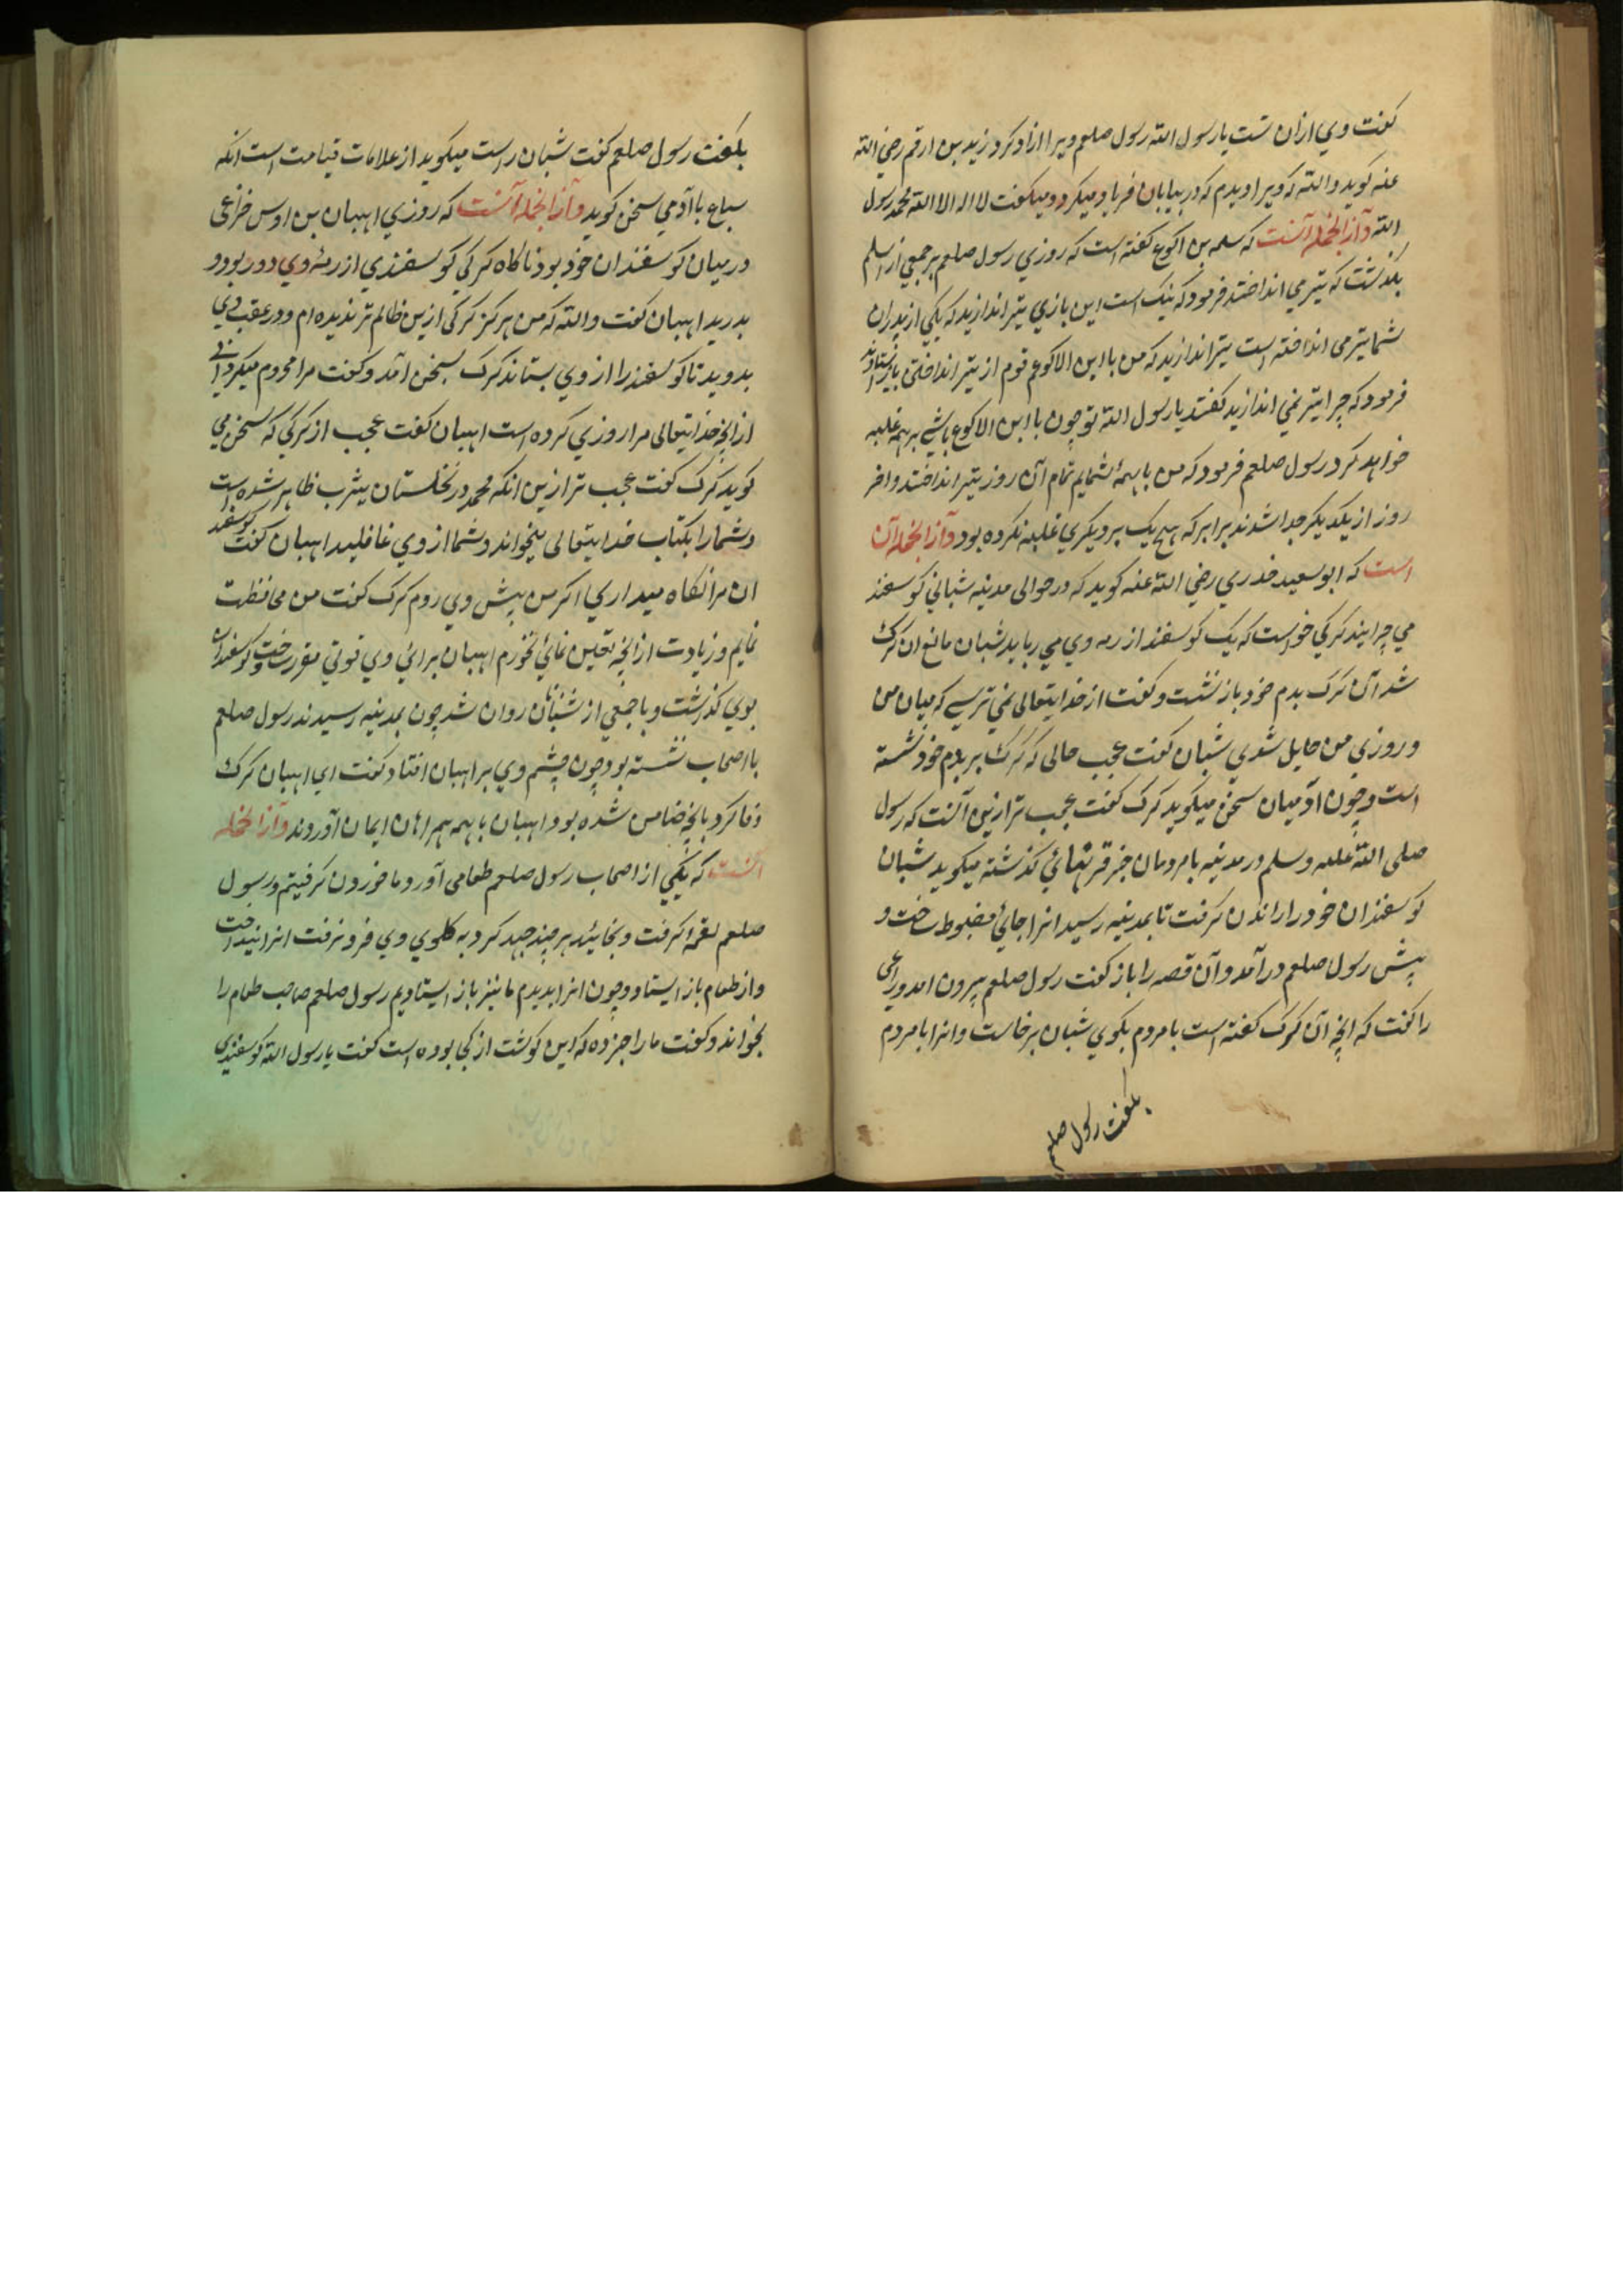 گفت وی ازان تست یا رسول الله رسول صلعم ویرا ازاد کرد زید بن ارقم رضی الله
عنه گوید والله که ویرا دیدم که در بیابان فریاد میکرد و میگفت لا اله الا الله محمد رسول
الله وازانجمله آنست که سلمه بن اکوع گفته است که روزی رسول صلعم بر جمعی از اسلم
بگذشت که تیر می انداختند فرمود که نیک است این بازی تیر اندازید که یکی از پدران
شما تیر می انداخته است تیر اندازید که من با ابن الاکوعم قوم از تیر انداختن باز ایستادند
فرمود که چرا تیر نمی اندازید گفتند یا رسول الله تو چون با ابن الاکوع باشی بر همه غلبه
خواهد کرد رسول صلعم فرمود که من با همهٔ شمایم تمام آن روز تیر انداختند و اخر
روز از یکدیگر جدا شدند برابر که هیچ یک بر دیگری غلبه نکرده بود وازانجمله آن
است که ابو سعید خدری رضی الله عنه گوید که در حوالی مدینه شبانی گوسفند
می چرانید گرگی خواست که یک گوسفند از رمه وی می رباید شبان مانع ان گرگ
شد آن گرگ بدم خود باز نشت و گفت از خدایتعالی نمی ترسی که میان من
و روزی من حایل شوی شبان گفت عجب حالی که گرگ بر دم خود نشسته
است و چون ادمیان سخن میگوید گرگ گفت عجب تر ازین آنست که رسول
صلی الله علیه وسلم در مدینه با مردمان خبر قرنهائی گذشته میگوید شبان
گوسفندان خود را راندن گرفت تا بمدینه رسید انرا جائی مضبوط ساخت و
پیش رسول صلعم درآمد و آن قصه را باز گفت رسول صلعم بیرون امد و راعی
را گفت که انچه آن گرگ گفته است با مردم بگوی شبان برخاست و انرا با مردم
بگفت رسول صلعم
بگفت رسول صلعم گفت شبان راست میگوید از علامات قیامت است انکه
سباع با آدمی سخن گوید وازانجمله آنست که روزی اهبان بن اوس خزاعی
در میان گوسفندان خود بود ناگاه گرگی گوسفندی از رمهٔ وی در ربود و
بدرید اهبان گفت والله که من هرگز گرگی ازین ظالم تر ندیده ام و در عقب وی
بدوید تا گوسفند را از وی بستاند گرگ بسخن آمد و گفت مرا محروم میگردانی
ازانچه خدایتعالی مرا روزی کرده است اهبان گفت عجب از گرگی که سخن می
گوید گرگ گفت عجب تر ازین انکه محمد در نخلستان یثرب ظاهر شده است
و شما را بکتاب خدایتعالی میخواند و شما از وی غافلید اهبان گفت گوسفند
ان مرا نگاه میداری اگر من پیش وی روم گرگ گفت من محافظت
نمایم و زیادت ازانچه تعین نمائی نخورم اهبان برائی وی قوتی مقرر ساخت و گوسفندان
بوی گذاشت و با جمعی از شبانان روان شد چون بمدینه رسیدند رسول صلعم
با اصحاب نشسته بود چون چشم وی بر اهبان افتاد گفت ای اهبان گرگ
وفا کرد بانچه ضامن شده بود اهبان با همه همراهان ایمان آوردند وازانجمله
آنست که یکی از اصحاب رسول صلعم طعامی آورد ما خوردن گرفتیم و رسول
صلعم لقمه گرفت و بخائید هر چند جهد کرد به گلوی وی فرو نرفت انرا بینداخت
و از طعام باز ایستاد و چون انرا بدیدیم ما نیز باز ایستادیم رسول صلعم صاحب طعام را
بخواند و گفت ما را خبر ده که این گوشت از کجا بوده است گفت یا رسول الله گوسفندی